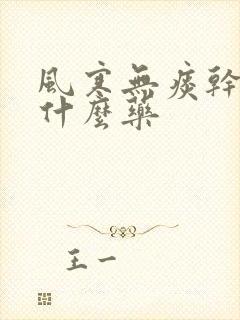 風寒無痰幹
什麼藥
王一